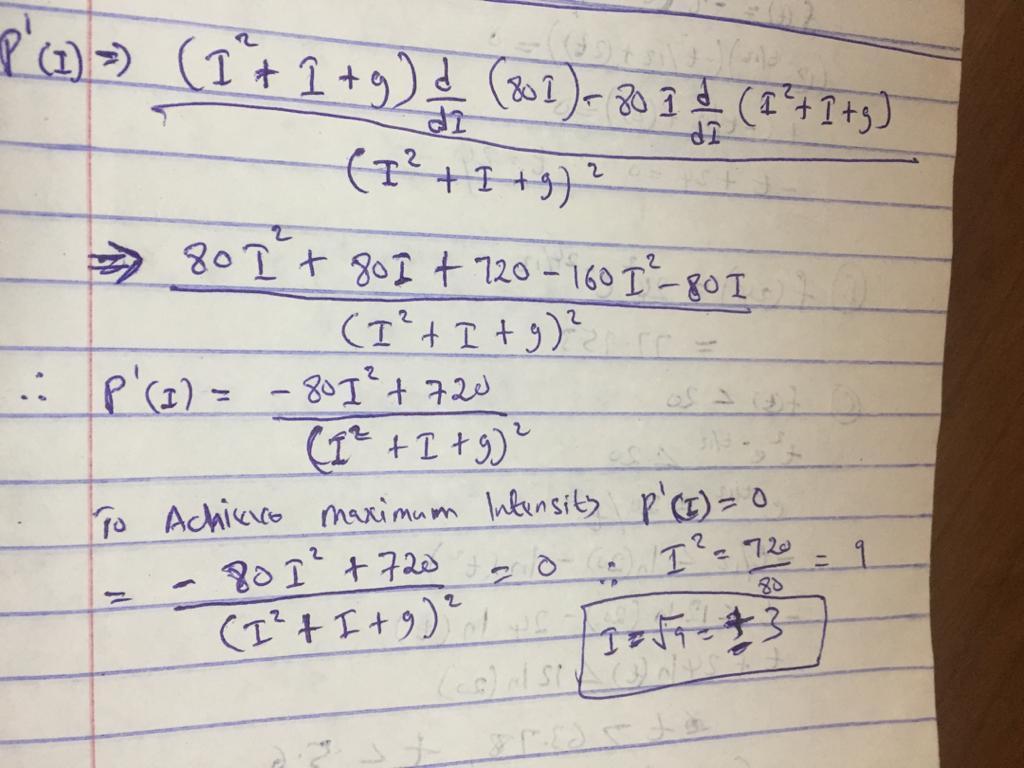 P'(I) => (I² + I + 9) d/dI (80I) - 80 I d/dI (I² + I + 9)
(I² + I + 9)²
=> 80I² + 80I + 720 - 160I² - 80I
(I² + I + 9)²
∴ P'(I) = - 80I² + 720
(I² + I + 9)²
To Achieve maximum Intensity P'(I) = 0
= - 80I² + 720 = 0 ∴ I² = 720/80 = 9
(I² + I + 9)²
I = √9 = ± 3